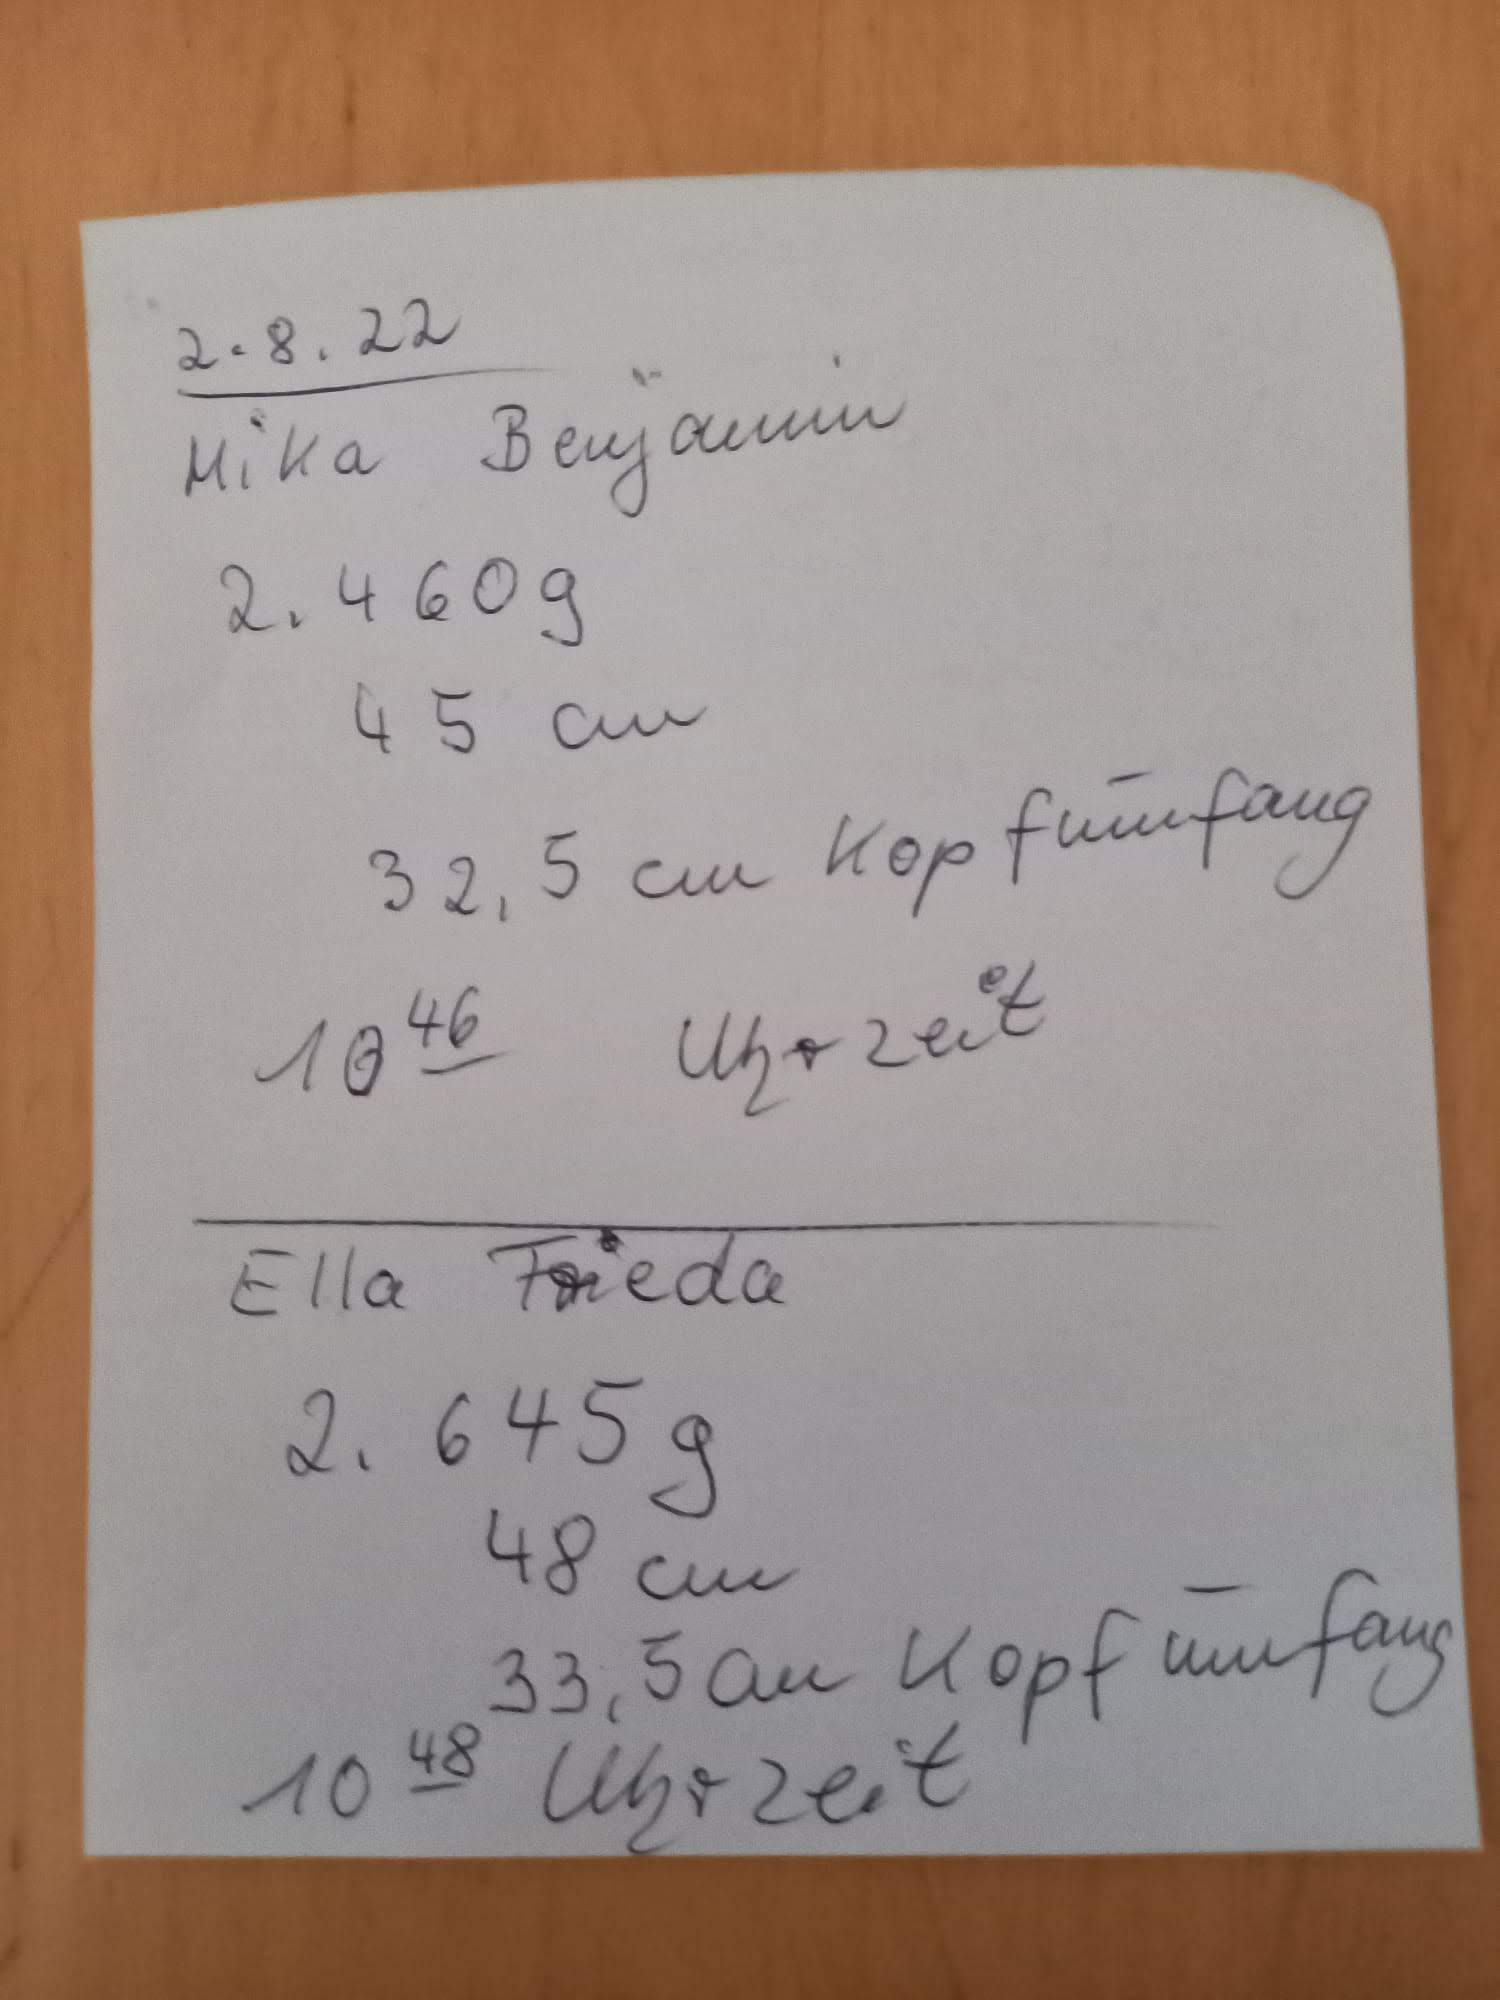 2.8.22
Mika Benjamin
2.460g
45 cm
32,5 cm Kopfumfang
10 46 Uhrzeit
Ella Frieda
2.645g
48 cm
33,5 cm Kopfumfang
10 48 Uhrzeit